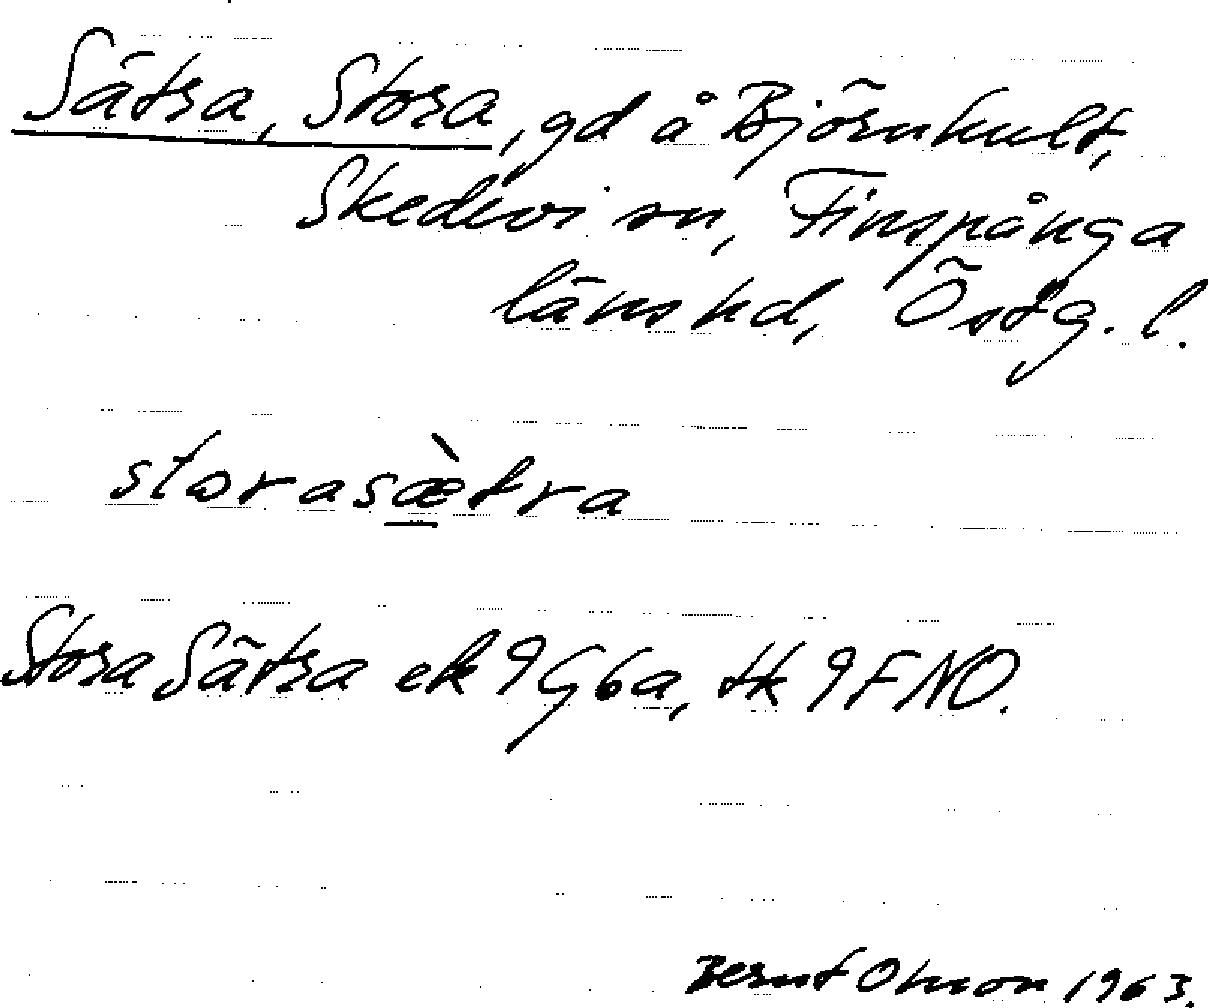 Sätra, Stora, gd å Björnhult,
Skedevi sn, Finspånga
läns hd, Östg. l.
storasæ̀tra
Stora Sätra ek 9G6a, tk 9FNO.
Bernt Olsson 1963.